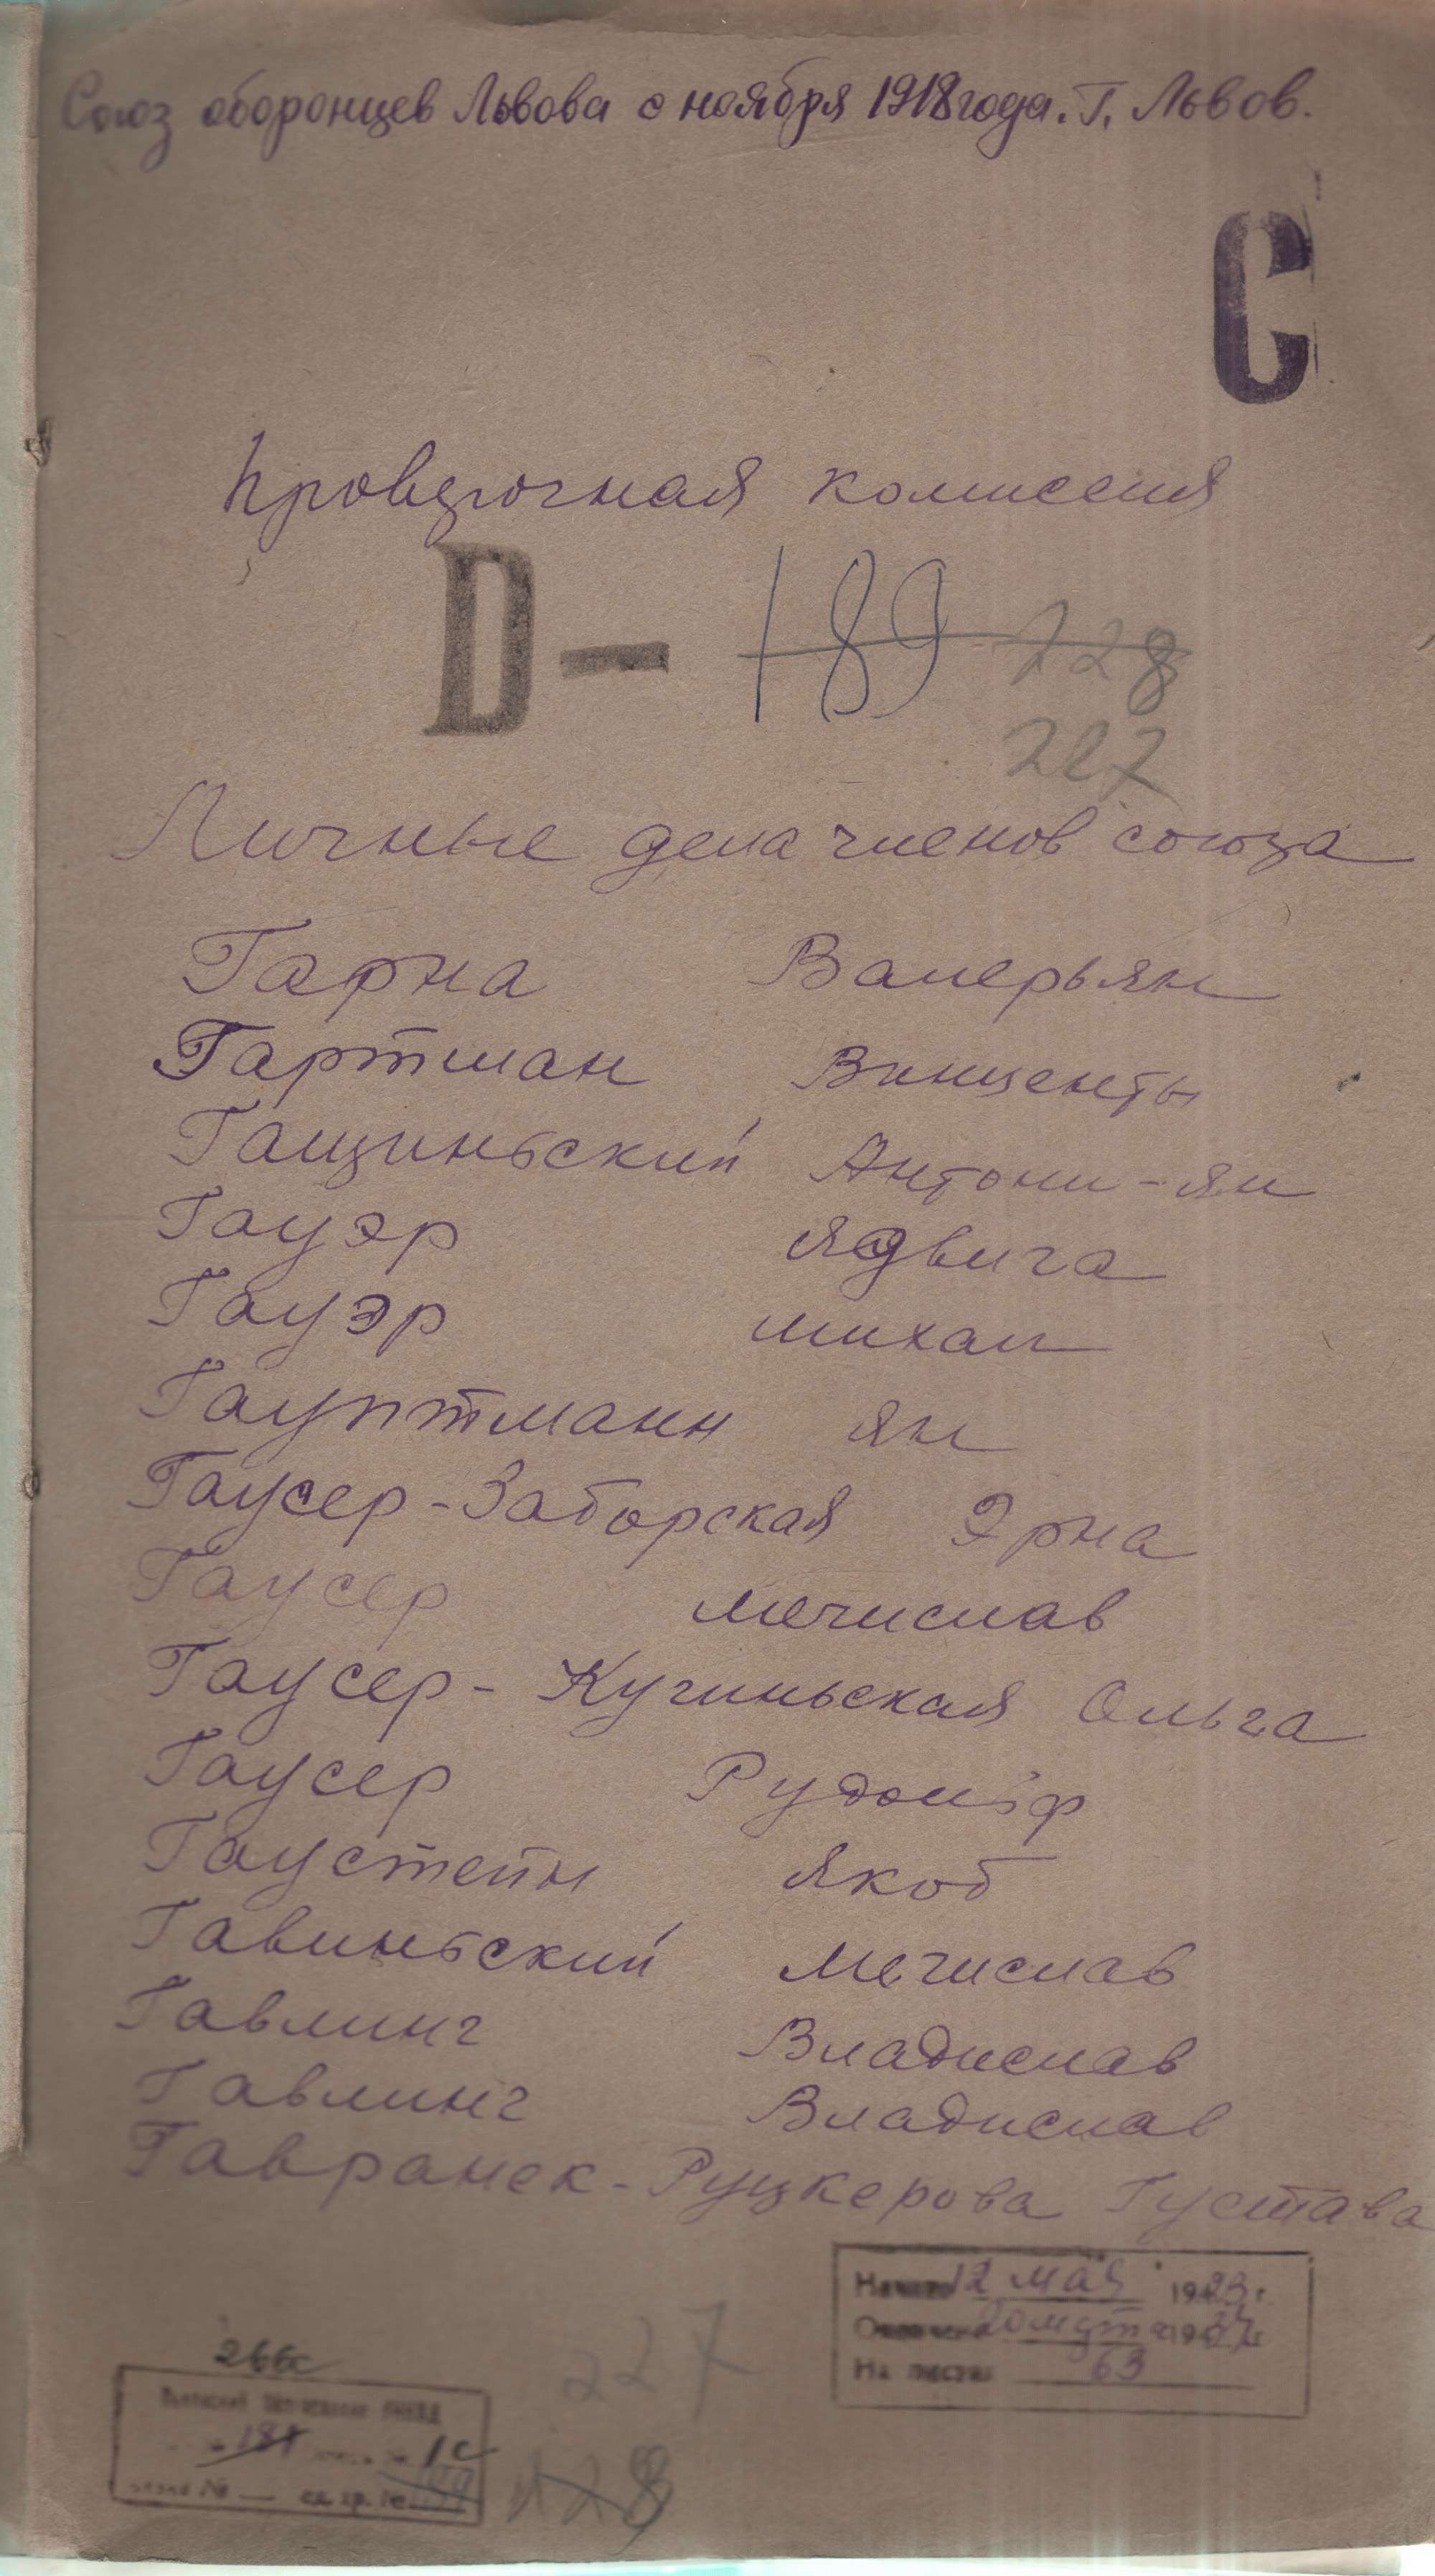 Союз оборонцев Львова с ноября 1918 года. Г. Львов.
С
Проверочная комиссия
D — 189 228
227
Личные дела членов союза
Гарна Валерьян
Гартман Винценты
Гащиньский Антони-Ян
Гауэр Ядвига
Гауэр Михал
Гауптманн Ян
Гаусер-Заборская Эрна
Гаусер Мечислав
Гаусер-Кучиньская Ольга
Гаусер Рудольф
Гаустейн Якоб
Гавиньский Мечислав
Гавлинг Владислав
Гавлинг Владислав
Гавранек-Руцкерова Густава
Начато 12 мая 19 г.
19
На листах 63
266с
227
189 1с
ед. хр.
228